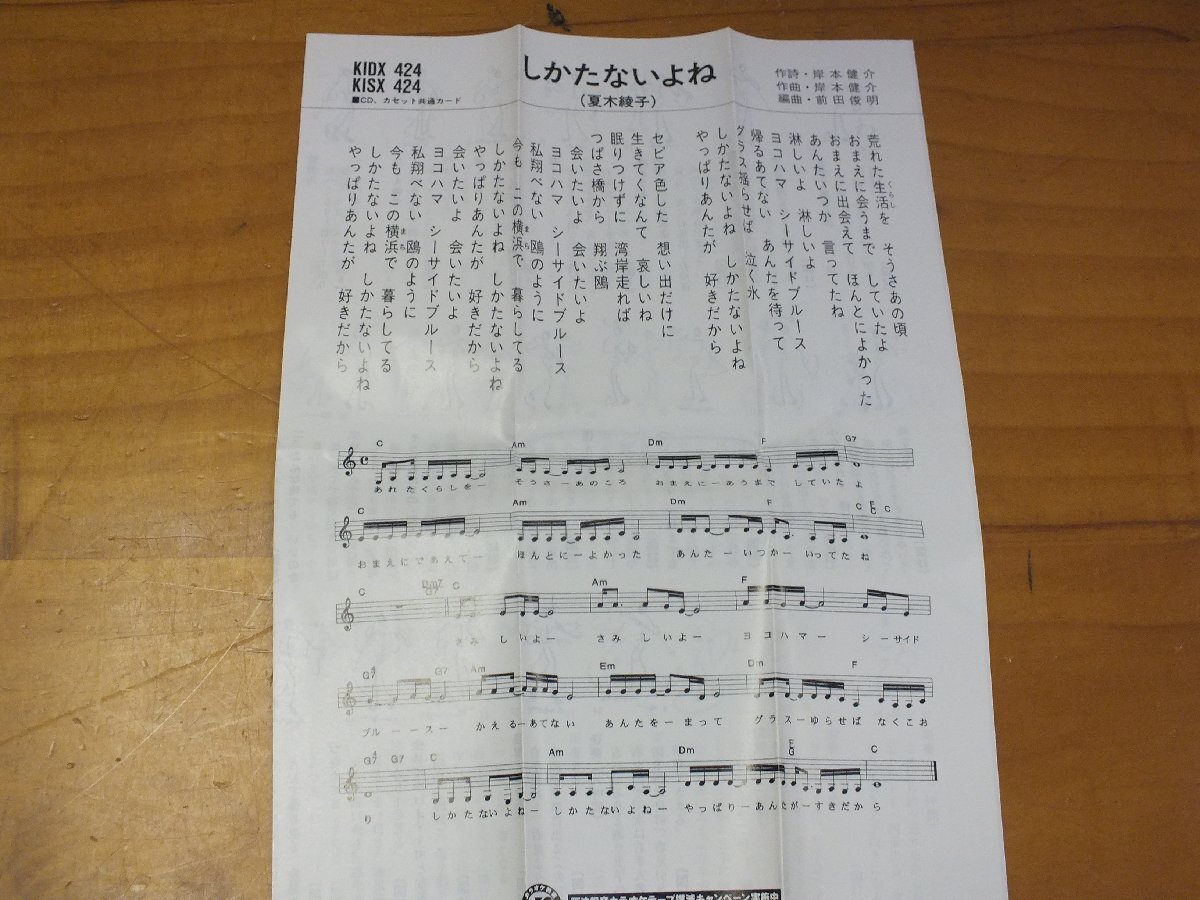 KIDX 424
KISX 424
■CD、カセット共通カード
しかたないよね
(夏木綾子)
作詩・岸本健介
作曲・岸本健介
編曲・前田俊明
荒れた生活を そうさあの頃
くらし
おまえに会うまで していたよ
おまえに出会えて ほんとによかった
あんたいつか 言ってたね
淋しいよ 淋しいよ
ヨコハマ シーサイドブルース
帰るあてない あんたを待って
グラス揺らせば 泣く氷
しかたないよね しかたないよね
やっぱりあんたが 好きだから
セピア色した 想い出だけに
生きてくなんて 哀しいね
眠りつけずに 湾岸走れば
つばさ橋から 翔ぶ鴎
会いたいよ 会いたいよ
ヨコハマ シーサイドブルース
私翔べない 鴎のように
今も この横浜で 暮らしてる
まち
しかたないよね しかたないよね
やっぱりあんたが 好きだから
会いたいよ 会いたいよ
ヨコハマ シーサイドブルース
私翔べない 鴎のように
今も この横浜で 暮らしてる
まち
しかたないよね しかたないよね
やっぱりあんたが 好きだから
C Am Dm F G7
あれたくらしをー そうさーあのころ おまえにーあうまで していた よ
C Am Dm F C F C C
おまえにであえてー ほんとにーよかった あんたーいつかーいってた ね
C Dm7 G7 C Am F
さみ しいよー さみ しいよー ヨコハマー シーサイド
G7 4 G7 Am Em Dm F
ブルーースー かえるーあてない あんたをーまって グラスーゆらせば なくこお
G7 4 G7 C Am Dm F G C
り しかたないよねー しかたないよねー やっぱりーあんたがーすきだから